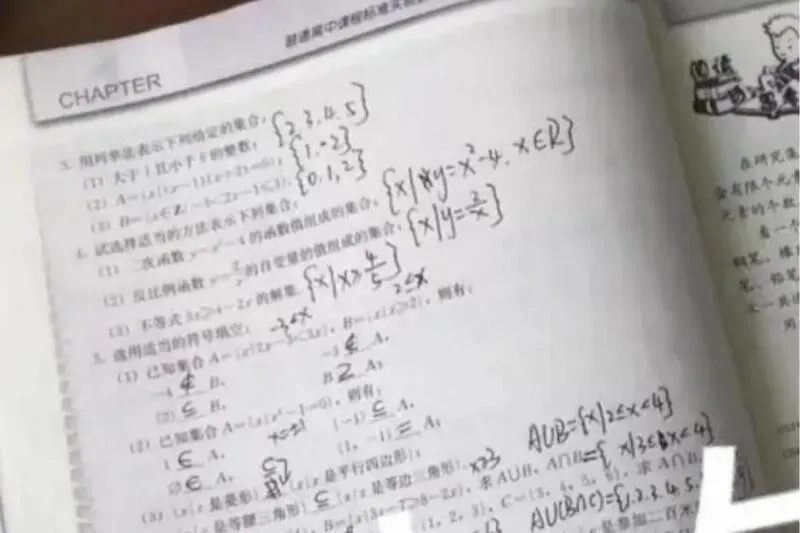 普通高中课程标准实验
CHAPTER
3. 用列举法表示下列给定的集合:
(1) 大于1且小于6的整数; {2,3,4,5}
(2) A={x|(x-1)(x+2)=0}; {1,-2}
(3) B={x∈Z|-1<2x-1≤3}. {0,1,2}
4. 试选择适当的方法表示下列集合:
(1) 二次函数y=x²-4的函数值组成的集合; {x|y=x²-4, x∈R}
(2) 反比例函数y=2/x的自变量的值组成的集合; {x|y=2/x}
(3) 不等式3x≥4-2x的解集. {x|x≥4/5}
5. 选用适当的符号填空: -3<x 2≤x
(1) 已知集合A={x|2x-3<3x}, B={x|x≥2}, 则有:
-4 ∉ B, -3 ∉ A,
{2} ⊆ B, B A;
(2) 已知集合A={x|x²-1=0}, 则有: x=±1
1 ∈ A, {-1} ⊆ A,
∅ ∈ A, {1, -1} = A;
(3) {x|x是菱形} {x|x是平行四边形};
{x|x是等腰三角形} ⊆ {x|x是等边三角形}.
x≥3 A∪B={x|2≤x<4}
B={x|3x-7≥8-2x}, 求A∪B, A∩B. ={x|3≤x<4}
{1, 2, 3}, C={3, 4, 5, 6}, 求A∩B,
A∪(B∩C)={1,2,3,4,5,
是参加二百米
在研究集
含有限个元素
元素的个数
看一个
钢笔、橡
笔、铅笔
文一共进
用